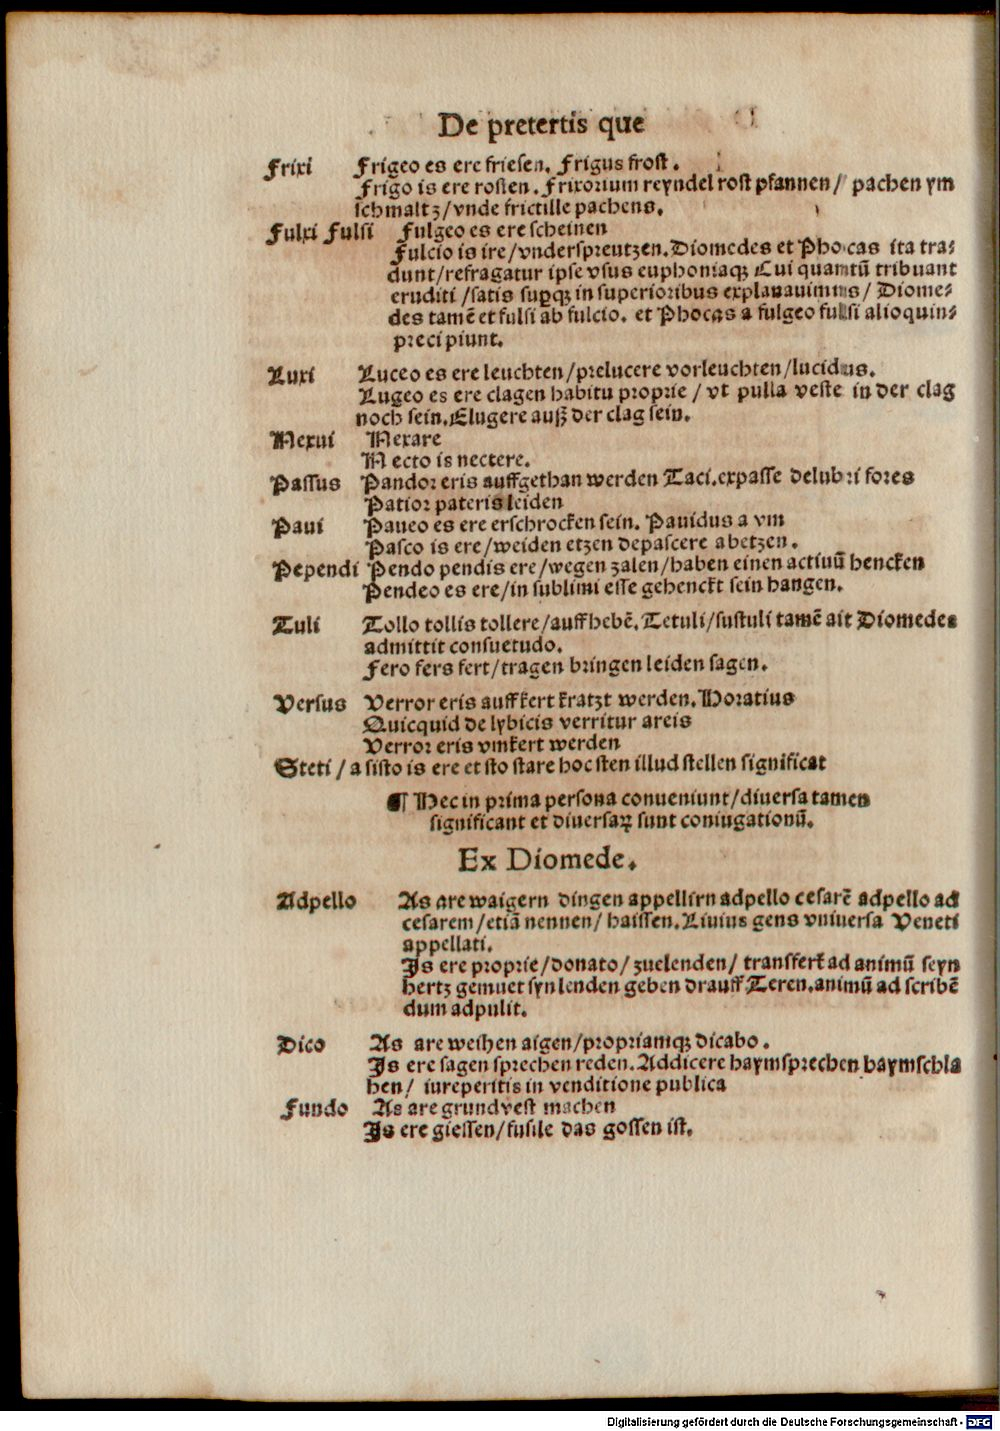 De pretertis que
Frixi Frigeo es ere friesen. Frigus frost.
Frigo is ere rosten. Frixorium reyndel rost pfannen/ pachen ym
schmaltz/vnde frictille pachens.
Fulxi Fulsi Fulgeo es ere scheinen
Fulcio is ire/vnderspreutzen. Diomedes et Phocas ita tra⸗
dunt/refragatur ipse vsus euphoniaqꝫ Cui quantū tribuant
eruditi /satis supqꝫ in superioribus explanauimus/ Diome⸗
des tamē et fulsi ab fulcio. et Phocas a fulgeo fulsi alioquin⸗
precipiunt.
Luxi Luceo es ere leuchten/prelucere vorleuchten/lucidus.
Lugeo es ere clagen habitu proprie/ vt pulla veste in der clag
noch sein. Elugere auß der clag sein.
Nexui Nexare
Necto is nectere.
Passus Pandor eris auffgethan werden Taci. expasse delubri fores
Patior pateris leiden
Paui Paueo es ere erschrocken sein. Pauidus a vm
Pasco is ere/weiden etzen depascere abetzen.
Pependi Pendo pendis ere/wegen zalen/haben einen actiuū hencken
Pendeo es ere/in sublimi esse gehenckt sein hangen.
Tuli Tollo tollis tollere/auffhebē. Tetuli/sustuli tamē ait Diomedes
admittit consuetudo.
Fero fers fert/tragen bringen leiden sagen.
Versus Verror eris auffkert kratzt werden. Horatius
Quicquid de lybicis verritur areis
Verror eris vmkert werden
Steti / a sisto is ere et sto stare hoc sten illud stellen significat
¶ Hec in prima persona conueniunt/diuersa tamen
significant et diuersaꝝ sunt coniugationū.
Ex Diomede.
Adpello As are waigern dingen appellirn adpello cesarē adpello ad
cesarem/etiā nennen/ haissen. Liuius gens vniuersa Veneti
appellati.
Is ere proprie/donato/zuelenden/ transfert ad animū seyn
hertz gemuet syn lenden geben drauff Teren. animū ad scribē
dum adpulit.
Dico As are weihen aigen/propriamqꝫ dicabo.
Is ere sagen sprechen reden. Addicere haymsprechen haymschla
hen/ iureperitis in venditione publica
Fundo As are grundvest machen
Is ere giessen/fusile das gossen ist.
Digitalisierung gefördert durch die Deutsche Forschungsgemeinschaft - DFG